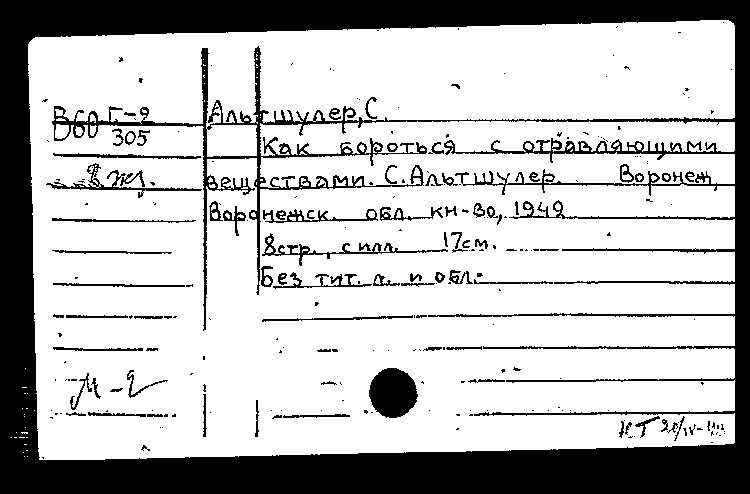 В60 Г-2
305
Альтшулер, С.
Как бороться с отравляющими
2 экз. веществами. С. Альтшулер. Воронеж,
Воронежск. обл. кн-во, 1942
8 стр., с илл. 17 см.
Без тит. л. и обл.-
М-2